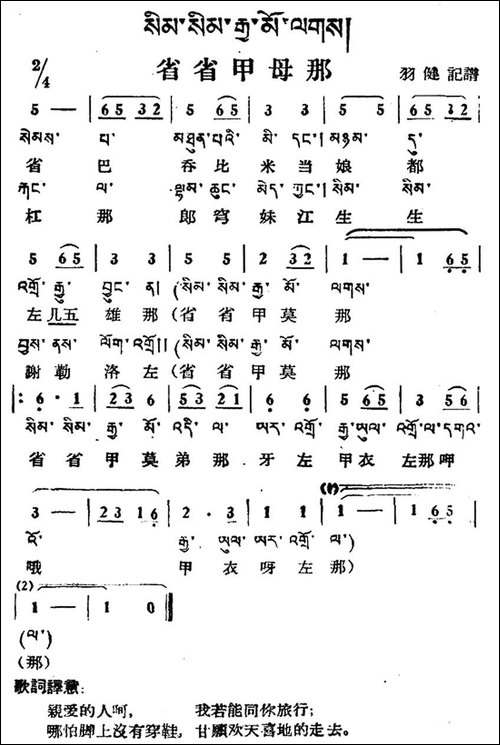 སིམ་སིམ་རྒྱ་མོ་ལགས།
省省甲母那
2/4
羽健記譜
5 — | 6 5 3 2 | 5 6 5 | 3 3 | 5 5 | 6 5 3 2 |
སེམས་ པ་ མཐུན་པའི་ མི་ དང་། མཉམ་ དུ་
省 巴 吞比 米当 娘 都
རྐང་ ལ་ ལྷམ་ ཆུང་ མེད་ ཀྱང་། སིམ་ སིམ་
杠 那 郎穹 妹江 生 生
5 6 5 | 3 3 | 5 5 | 2 3 2 | 1 — | 1 6 5 |
འགྲོ་རྒྱུ་ བྱུང་ ན། (སིམ་ སིམ་ རྒྱ་ མོ་ ལགས་
左几五 雄那 (省省甲莫 那
བྱས་ ནས་ ལོག་འགྲོ།། (སིམ་ སིམ་ རྒྱ་ མོ་ ལགས་
謝勒 洛左 (省省甲莫 那
|: 6 · 1 | 2 3 6 | 5 3 2 1 | 6 6 | 5 6 5 | 3 5 6 |
སིམ་ སིམ་ རྒྱ་ མོ་ འདི་ ལ་ ཡར་ འགྲོ་ རྒྱ་ཡུལ་ འགྲོ་ལ་དགའ་
省省 甲莫 弟那 牙左 甲衣 左那呷
3 — | 2 3 1 6 | 2 · 3 | 2 1 6 | 1 — | 1 6 5 |
(1)
འོ་ རྒྱ་ ཡུལ་ ཡར་ འགྲོ་ ལ་)
哦 甲 衣呀左 那)
(2)
1 — | 1 0 ‖
(ལ་)
(那)
歌詞譯意:
親爱的人啊, 我若能同你旅行;
哪怕脚上沒有穿鞋, 甘願欢天喜地的走去。